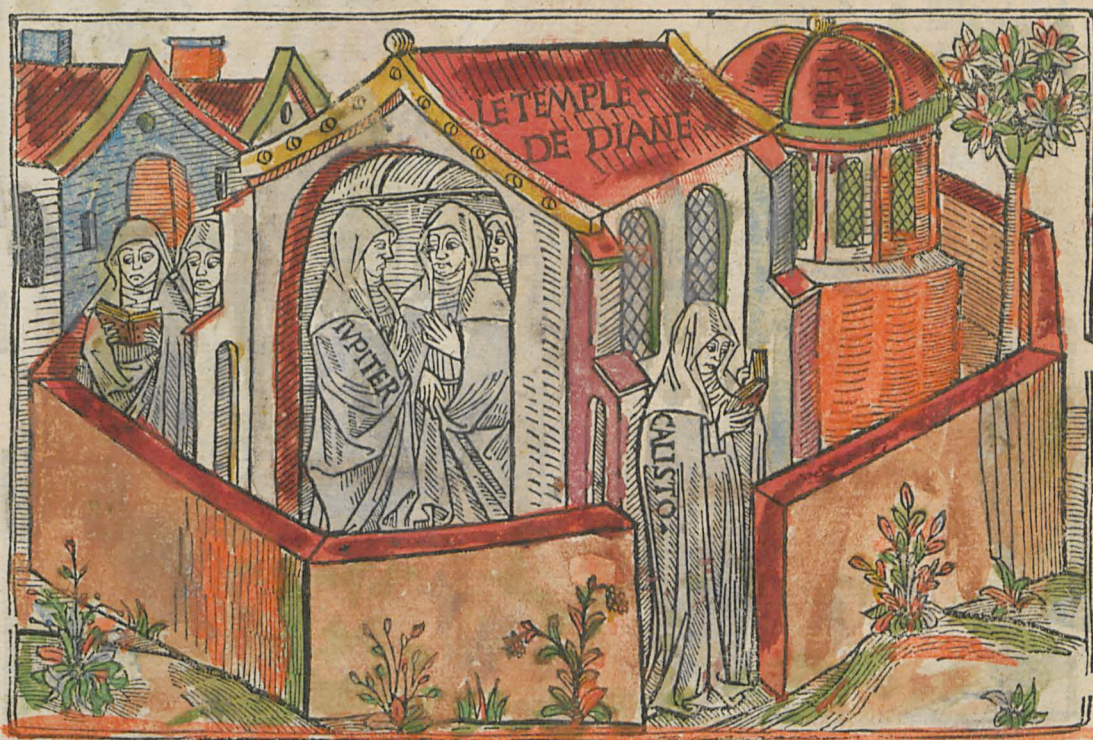 LE TEMPLE
DE DIANE
IVPITER
CALISTO